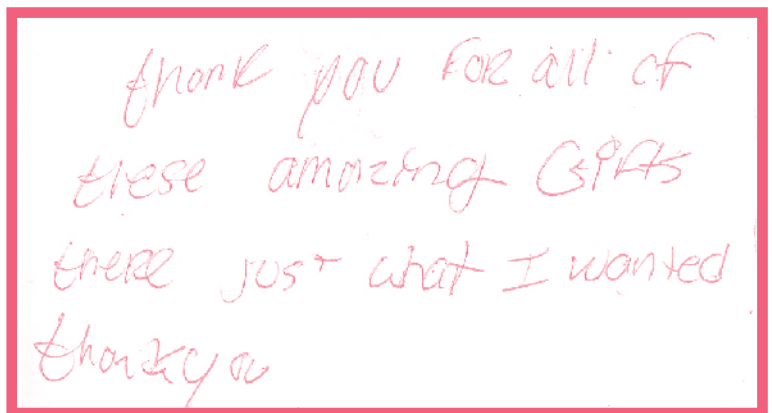 thank you FOR all of
these amazing Gifts
there just what I wanted
thankyou